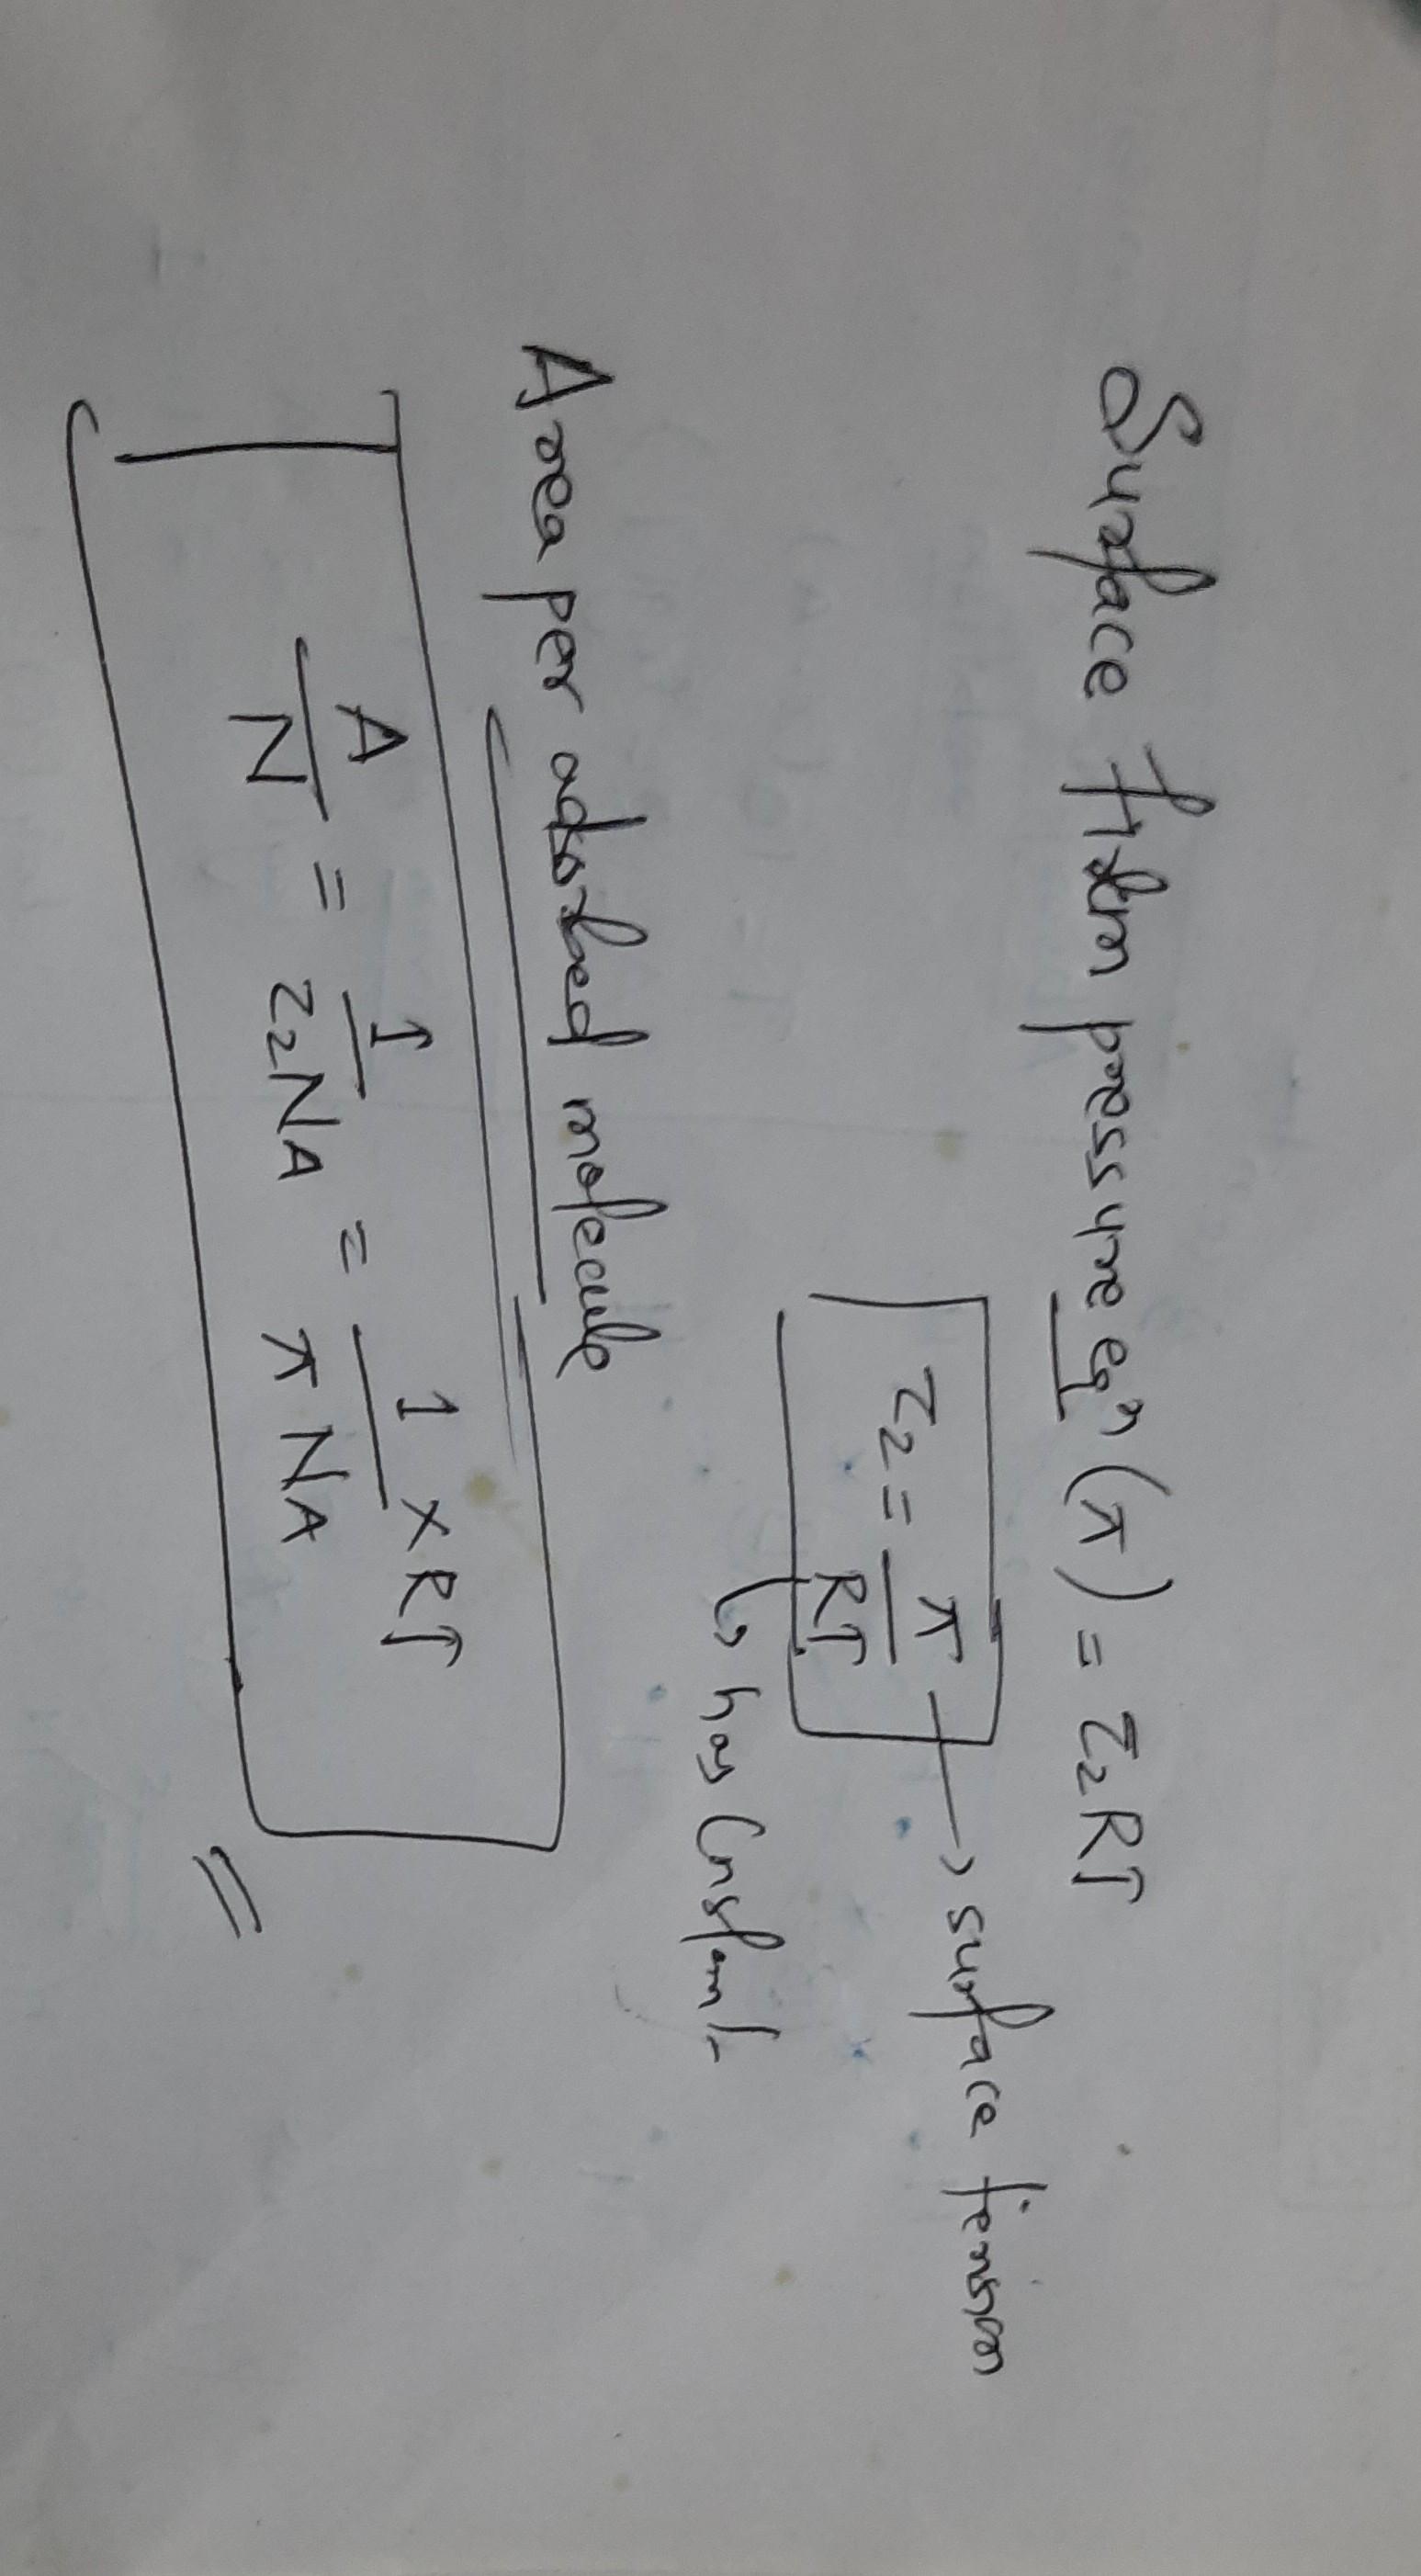 Surface film pressure eqⁿ (π) = τ₂RT
τ₂ = π/RT → surface tension
↳ has Constant
Area per adsorbed molecule
A/N = 1/τ₂NA = 1/πNA × RT